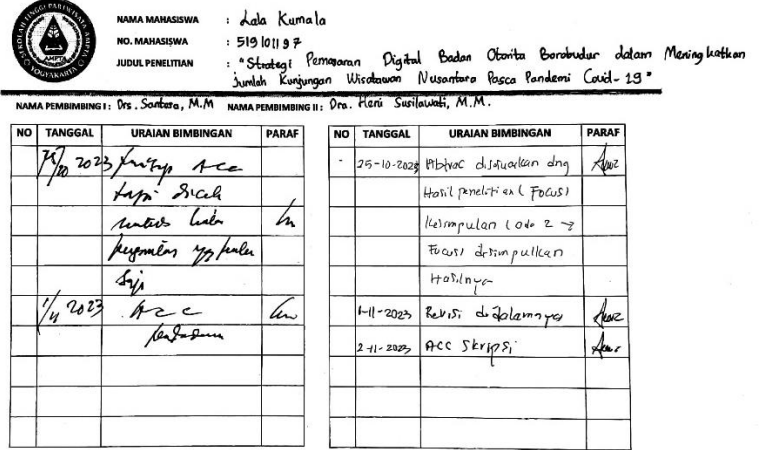 SEKOLAH TINGGI PARIWISATA AMPTA
AMPTA
YOGYAKARTA
NAMA MAHASISWA : Lala Kumala
NO. MAHASISWA : 519101197
JUDUL PENELITIAN : "Strategi Pemasaran Digital Badan Otorita Borobudur dalam Meningkatkan
Jumlah Kunjungan Wisatawan Nusantara Pasca Pandemi Covid-19"
NAMA PEMBIMBING I : Drs. Santosa, M.M NAMA PEMBIMBING II : Dra. Heni Susilawati, M.M.
NO TANGGAL URAIAN BIMBINGAN PARAF
2023 Acc
tapi dicek
yg perlu
saja
1/11 2023 Acc
NO TANGGAL URAIAN BIMBINGAN PARAF
- 25-10-2023 Abtrac disesuaikan dng
Hasil penelitian (Focus)
Kesimpulan (ada 2 →
Focus) disimpulkan
Hasilnya
1-11-2023 Revisi didalamnya
2-11-2023 ACC Skripsi